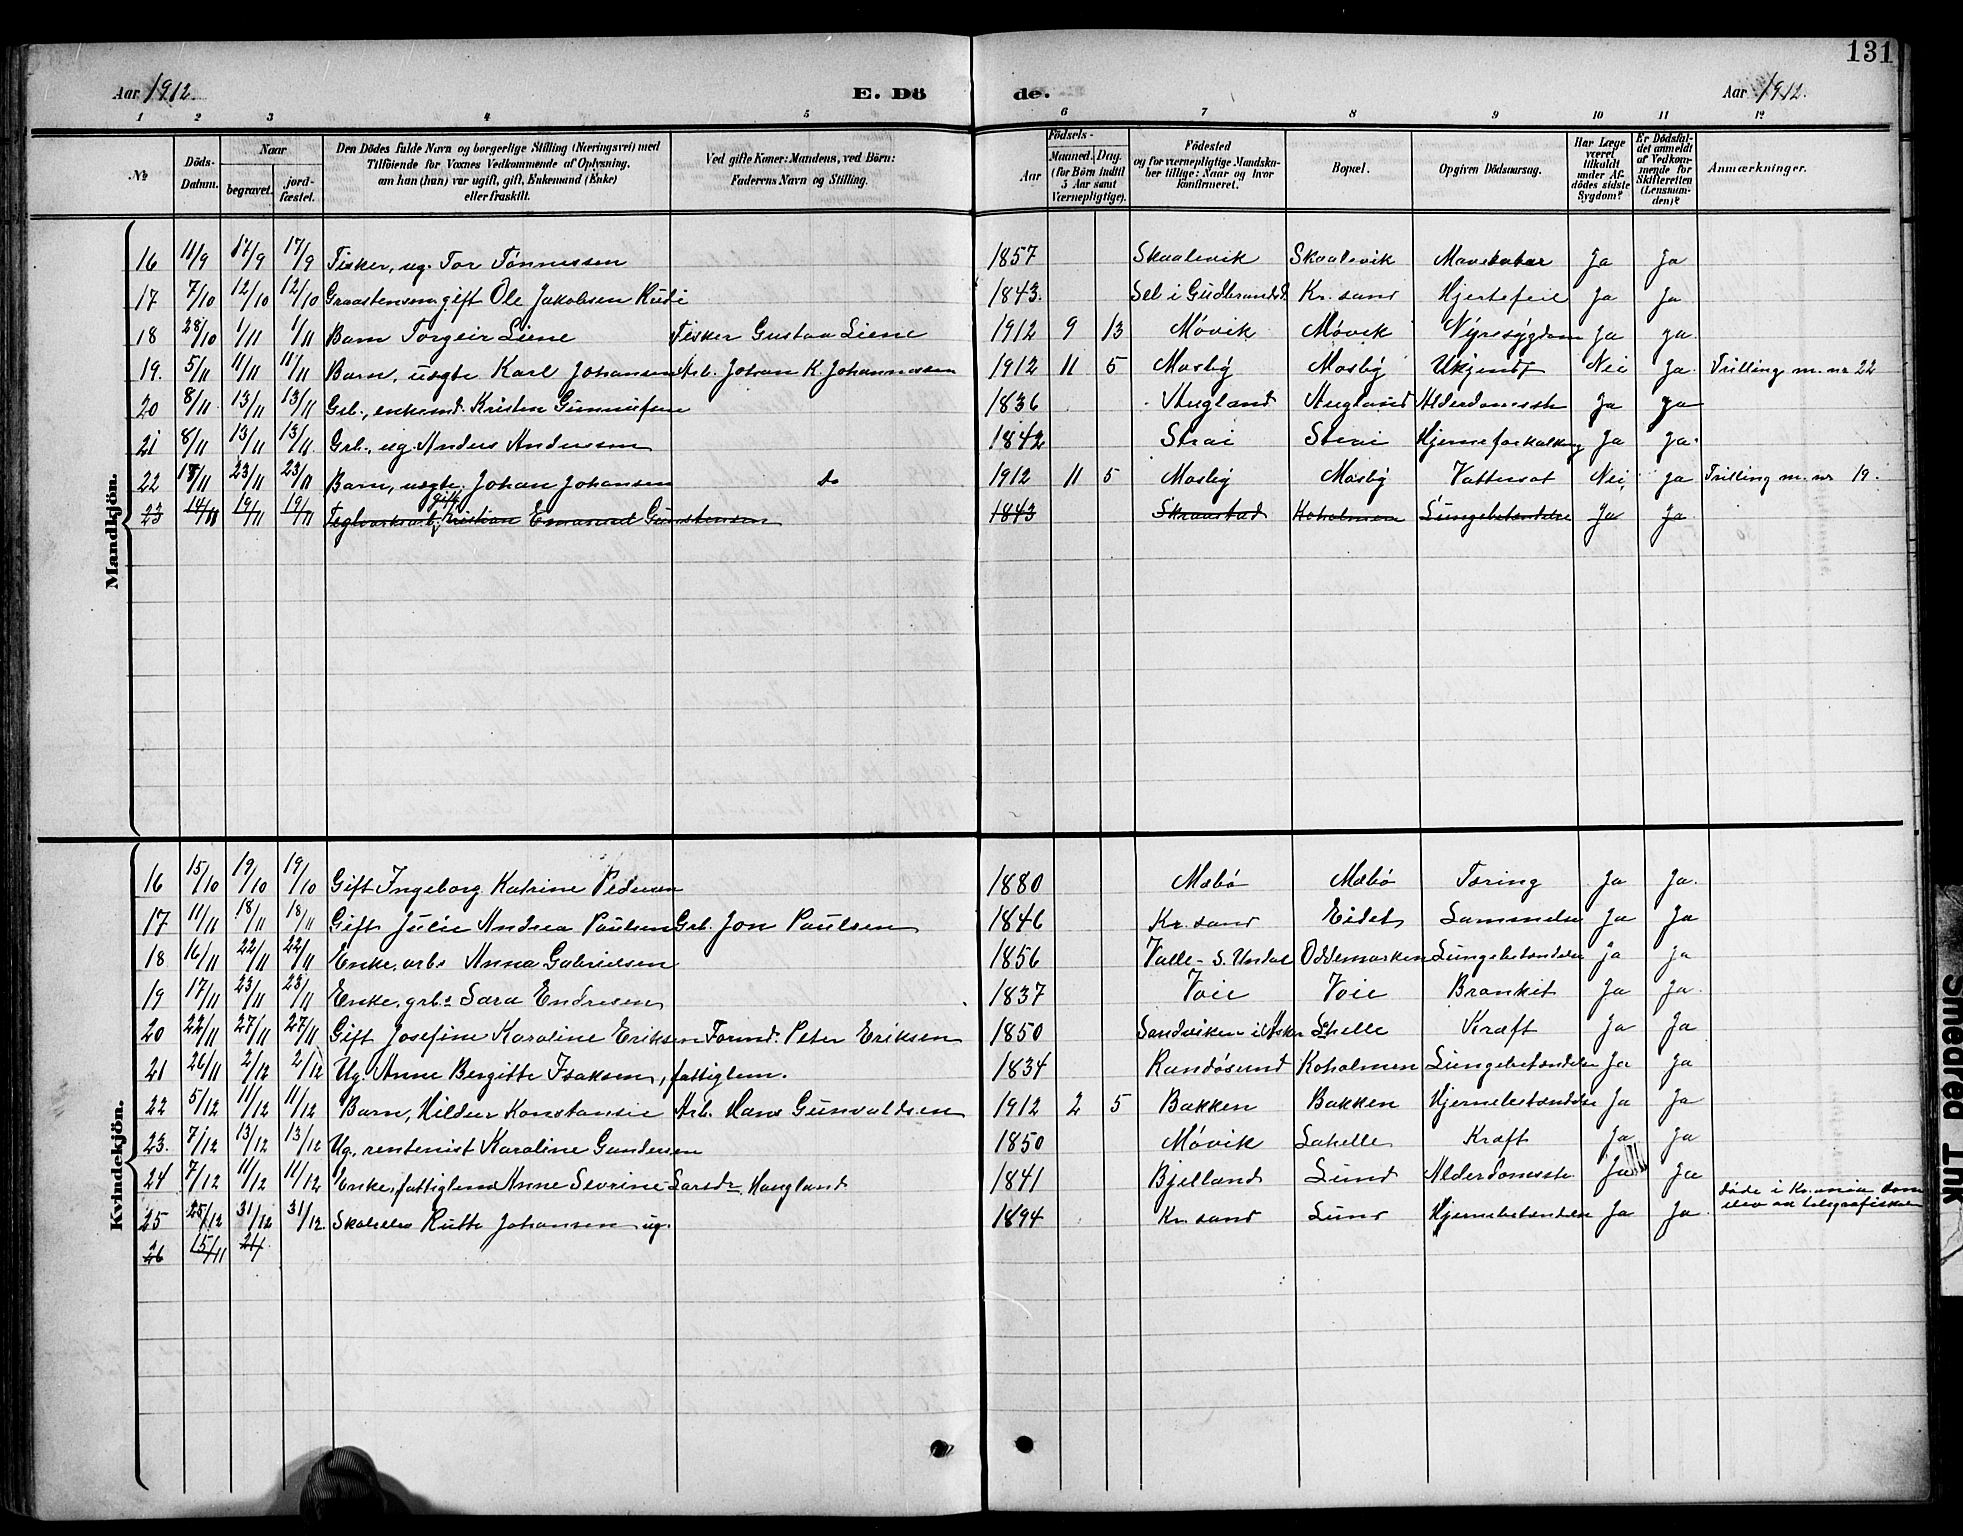 131
Aar 1912. E. Dö de. Aar 1912.
1 2 3 4 5 6 7 8 9 10 11 12
№ Döds-Datum. Naar begravet. jord-fæstet. Den Dödes fulde Navn og borgerlige Stilling (Næringsvei) med Tilföiende for Voxnes Vedkommende af Oplysning, om han (hun) var ugift, gift, Enkemand (Enke) eller fraskilt. Ved gifte Koner: Mandens, ved Börn: Faderens Navn og Stilling. Födsels- Aar Maaned. Dag. (for Börn indtil 5 Aar samt Værnepligtige). Födested og for værnepligtige Mandskaber tillige: Naar og hvor konfirmeret. Bopæl. Opgiven Dödsaarsag. Har Læge været tilkaldt under Afdödes sidste Sygdom? Er Dödsfaldet anmeldt af Vedkommende for Skifteretten (Lensmanden)? Anmærkninger.
Mandkjön.
16 11/9 17/9 17/9 Fisker, ug. Tor Tönnessen 1857 Skaalevik Skaalevik Mavekatar Ja Ja
17 7/10 12/10 12/10 gift Ole Jakobsen Rudi 1843. Sel i Gudbrandsd. Kr.sand Hjertefeil Ja Ja
18 28/10 1/11 1/11 Barn Torgeir Liene Fisker Gustav Liene 1912 9 13 Møvik Møvik Nyresygdom Ja ja.
19. 5/11 11/11 11/11 Barn, uægte Karl Johansen Arb. Johan K. Johannessen 1912 11 5 Mosby Mosby Ukjendt Nei Ja. Trilling m. nr 22
20 8/11 13/11 13/11 Grb., enkemd. Kristen Gunnufsen 1836 Augland Augland Alderdomssv. Ja ja
21 8/11 13/11 13/11 Grb., ug. Anders Anderssen 1842 Strai Strai Hjerneforkalkning Ja ja.
22 17/11 23/11 23/11 Barn, uægte. Johan Johansen do 1912 11 5 Mosby Mosby Vattersot Nei, ja Trilling m. nr 19.
23 14/11 19/11 19/11 Teglverksarb. gift Kristian Emanuel Gunstensen 1843 Skraastad Koholmen Lungebetændelse Ja Ja.
Kvindekjön.
16 15/10 19/10 19/10 Gift Ingeborg Katrine Pedersen 1880 Mebø Mebø Tæring Ja Ja.
17 11/11 18/11 18/11 Gift Julie Andrea Paulsen Grb. Jon Paulsen 1846 Kr.sand Eidet Lammelse Ja Ja
18 16/11 22/11 22/11 Enke, arb. Anna Gabrielsen 1856 Valle - S. Undal Oddemarken Lungebetændelse ja Ja
19 17/11 23/11 23/11 Enke, grb. Sara Endresen 1837 Voie Voie Bronkit Ja Ja.
20 22/11 27/11 27/11 Gift Josefine Karoline Eriksen Formd. Peter Eriksen 1850 Sandviken i Asker Lahelle Kræft Ja Ja
21 26/11 2/12 2/12 Ug. Anne Bergitte Isaksen, fattiglem. 1834 Randøsund Koholmen Lungebetændelse Ja Ja
22 5/12 11/12 11/12 Barn, Hildur Konstansie Arb. Hans Gunvaldsen 1912 2 5 Bakken Bakken Hjernebetændelse Ja Ja
23. 7/12 13/12 13/12 Ug., rentenist Karoline Gundersen 1850 Møvik Lahelle Kræft Ja Ja
24 7/12 11/12 11/12 Enke, fattiglem Anne Sevrine Larsdr. Haugland 1841 Bjelland Lund Alderdomssv. Ja Ja
25 25/12 31/12 31/12. Ruth Johansen ug. 1894 Kr.sand Lund Hjernebetændelse Ja Ja. døde i Kr.ania som
elev av telegrafskolen
26 15/11 21/
Smedred Ink